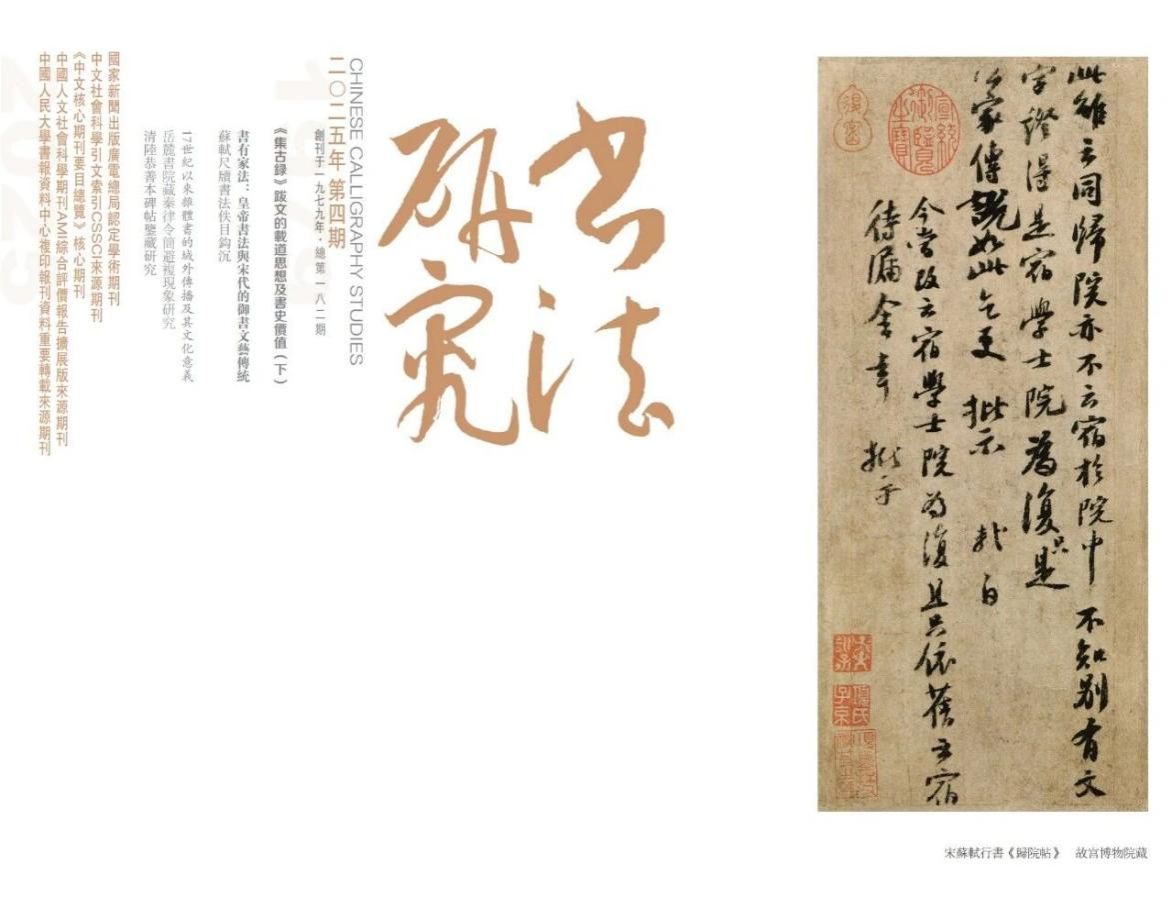 書法
研究
CHINESE CALLIGRAPHY STUDIES
二〇二五年 第四期
創刊于一九七九年·總第一八二期
1979
《集古録》跋文的載道思想及書史價值（下）
書有家法：皇帝書法與宋代的御書文藝傳統
蘇軾尺牘書法佚目鈎沉
17世紀以來雜體書的域外傳播及其文化意義
岳麓書院藏秦律令簡避複現象研究
清陸恭善本碑帖鑒藏研究
國家新聞出版廣電總局認定學術期刊
中文社會科學引文索引CSSCI來源期刊
《中文核心期刊要目總覽》核心期刊
中國人文社會科學期刊AMI綜合評價報告擴展版來源期刊
中國人民大學書報資料中心複印報刊資料重要轉載來源期刊
2025
此雖云同歸院亦不云宿於院中 不知別有文
字證得是宿學士院為復只是
家傳說如此乞更 批示 軾白
今當改云宿學士院為復且只依舊云宿
待漏舍幸 批示
宣統御覽之寶
項氏子京
宋蘇軾行書《歸院帖》 故宮博物院藏